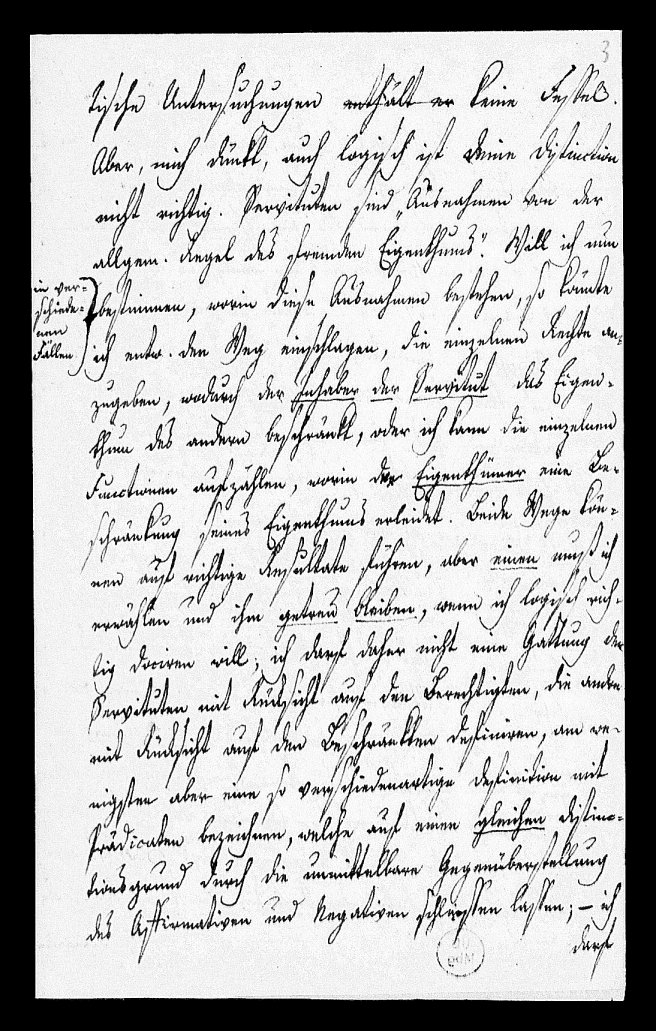 3
tische Untersuchungen enthält er keine Fessel.
Aber, mich dünkt, auch logisch ist deine Distinction
nicht richtig. Servituten sind „Ausnahmen von der
allgem. Regel des fremden Eigenthums“. Will ich nun
in ver-
schiede-
nen
Fällen
bestimmen, worin diese Ausnahmen bestehen, so könnte
ich entw. den Weg einschlagen, die einzelnen Rechte an-
zugeben, wodurch der Inhaber der Servitut das Eigen-
thum des andern beschränkt, oder ich kann die einzelnen
Functionen aufzählen, worin der Eigenthümer eine Be-
schränkung seines Eigenthums erleidet. Beide Wege kön-
nen auf richtige Resultate führen, aber einen muß ich
erwählen und ihm getreu bleiben, wenn ich logisch rich-
tig dociren will; ich darf daher nicht eine Gattung der
Servituten mit Rücksicht auf den Berechtigten, die andre
mit Rücksicht auf den Beschränkten definiren, am we-
nigsten aber eine so verschiedenartige Definition mit
Prädicaten bezeichnen, welche auf einen gleichen Distinc-
tionsgrund durch die unmittelbare Gegenüberstellung
des Affirmativen und Negativen schliessen lassen; – ich
darf